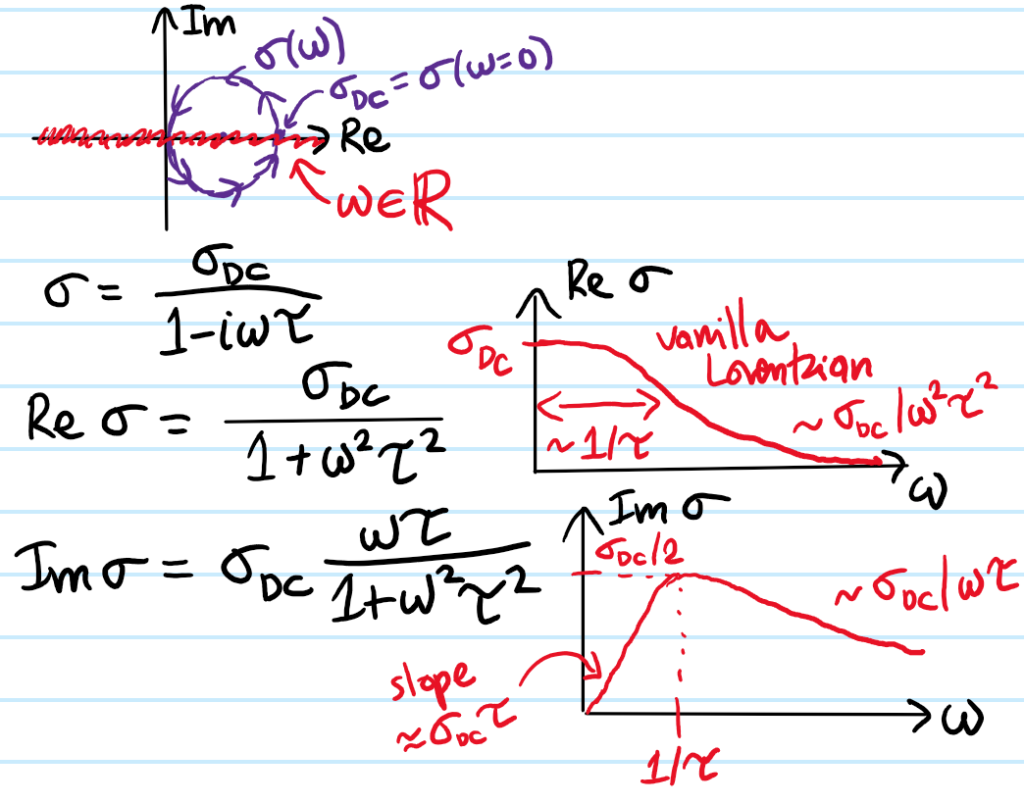 Im
σ(ω)
σ_DC = σ(ω=0)
Re
ω∈ℝ
σ = σ_DC / (1-iωτ)
Re σ = σ_DC / (1+ω²τ²)
Im σ = σ_DC ωτ / (1+ω²τ²)
Re σ
σ_DC
vanilla
Lorentzian
~1/τ
~ σ_DC/ω²τ²
ω
Im σ
σ_DC/2
~ σ_DC/ωτ
slope
≈σ_DC τ
1/τ
ω